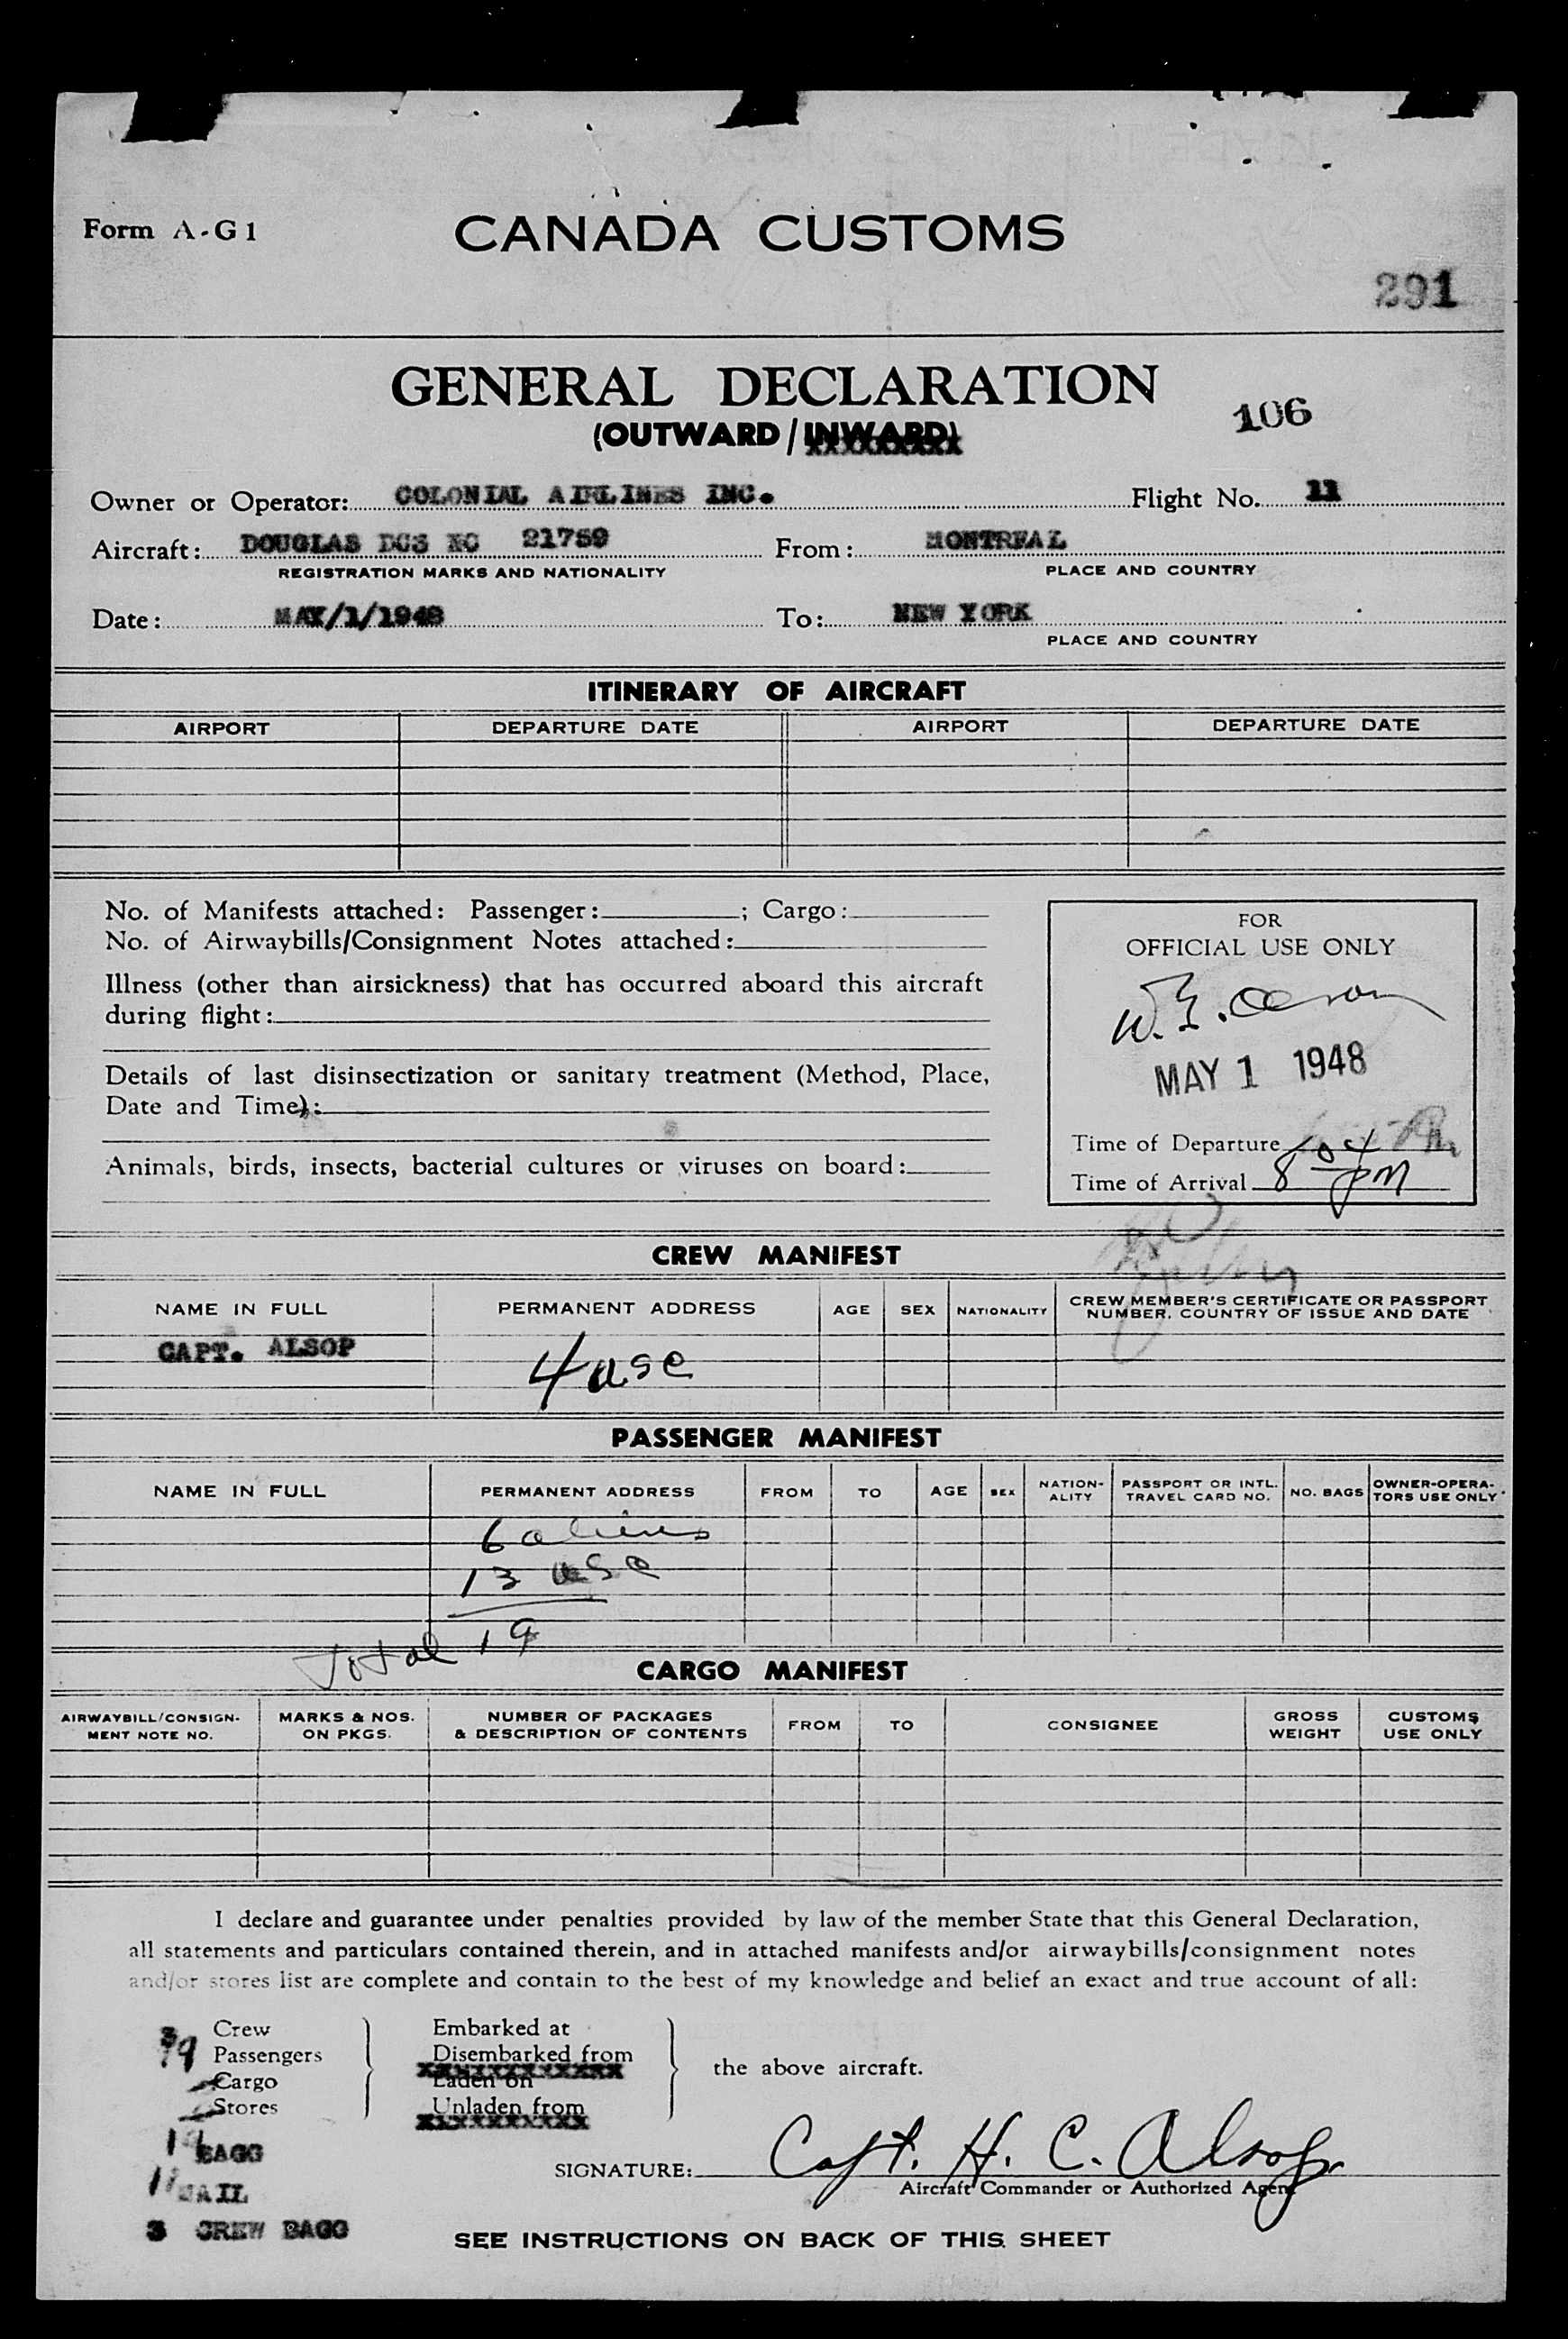 Form A-G1
CANADA CUSTOMS
291
GENERAL DECLARATION
(OUTWARD/INWARD)
106
Owner or Operator: COLONIAL AIRLINES INC. Flight No. 11
Aircraft: DOUGLAS DC3 NC 21759 From: MONTREAL
REGISTRATION MARKS AND NATIONALITY PLACE AND COUNTRY
Date: MAY/1/1948 To: NEW YORK
PLACE AND COUNTRY
ITINERARY OF AIRCRAFT
AIRPORT DEPARTURE DATE AIRPORT DEPARTURE DATE
No. of Manifests attached: Passenger: ; Cargo:
No. of Airwaybills/Consignment Notes attached:
Illness (other than airsickness) that has occurred aboard this aircraft
during flight:
Details of last disinsectization or sanitary treatment (Method, Place,
Date and Time):
Animals, birds, insects, bacterial cultures or viruses on board:
FOR
OFFICIAL USE ONLY
MAY 1 1948
Time of Departure
Time of Arrival 8 04 PM
CREW MANIFEST
NAME IN FULL PERMANENT ADDRESS AGE SEX NATIONALITY CREW MEMBER'S CERTIFICATE OR PASSPORT
NUMBER, COUNTRY OF ISSUE AND DATE
CAPT. ALSOP 4 usc
PASSENGER MANIFEST
NAME IN FULL PERMANENT ADDRESS FROM TO AGE SEX NATION-
ALITY PASSPORT OR INTL.
TRAVEL CARD NO. NO. BAGS OWNER-OPERA-
TORS USE ONLY
6 aliens
13 usc
Total 19
CARGO MANIFEST
AIRWAYBILL/CONSIGN-
MENT NOTE NO. MARKS & NOS.
ON PKGS. NUMBER OF PACKAGES
& DESCRIPTION OF CONTENTS FROM TO CONSIGNEE GROSS
WEIGHT CUSTOMS
USE ONLY
I declare and guarantee under penalties provided by law of the member State that this General Declaration,
all statements and particulars contained therein, and in attached manifests and/or airwaybills/consignment notes
and/or stores list are complete and contain to the best of my knowledge and belief an exact and true account of all:
3 Crew Embarked at
19 Passengers Disembarked from
Cargo Laden on the above aircraft.
Stores Unladen from
BAGG
MAIL
3 CREW BAGG
SIGNATURE: Capt. H. C. Alsop
Aircraft Commander or Authorized Agent
SEE INSTRUCTIONS ON BACK OF THIS SHEET